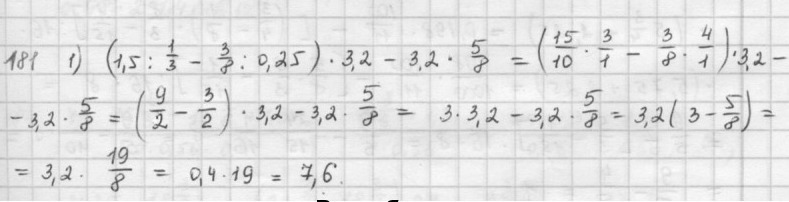 181 1) (1,5 : 1/3 − 3/8 : 0,25) · 3,2 − 3,2 · 5/8 = (15/10 · 3/1 − 3/8 · 4/1) · 3,2 −
− 3,2 · 5/8 = (9/2 − 3/2) · 3,2 − 3,2 · 5/8 = 3 · 3,2 − 3,2 · 5/8 = 3,2 (3 − 5/8) =
= 3,2 · 19/8 = 0,4 · 19 = 7,6.